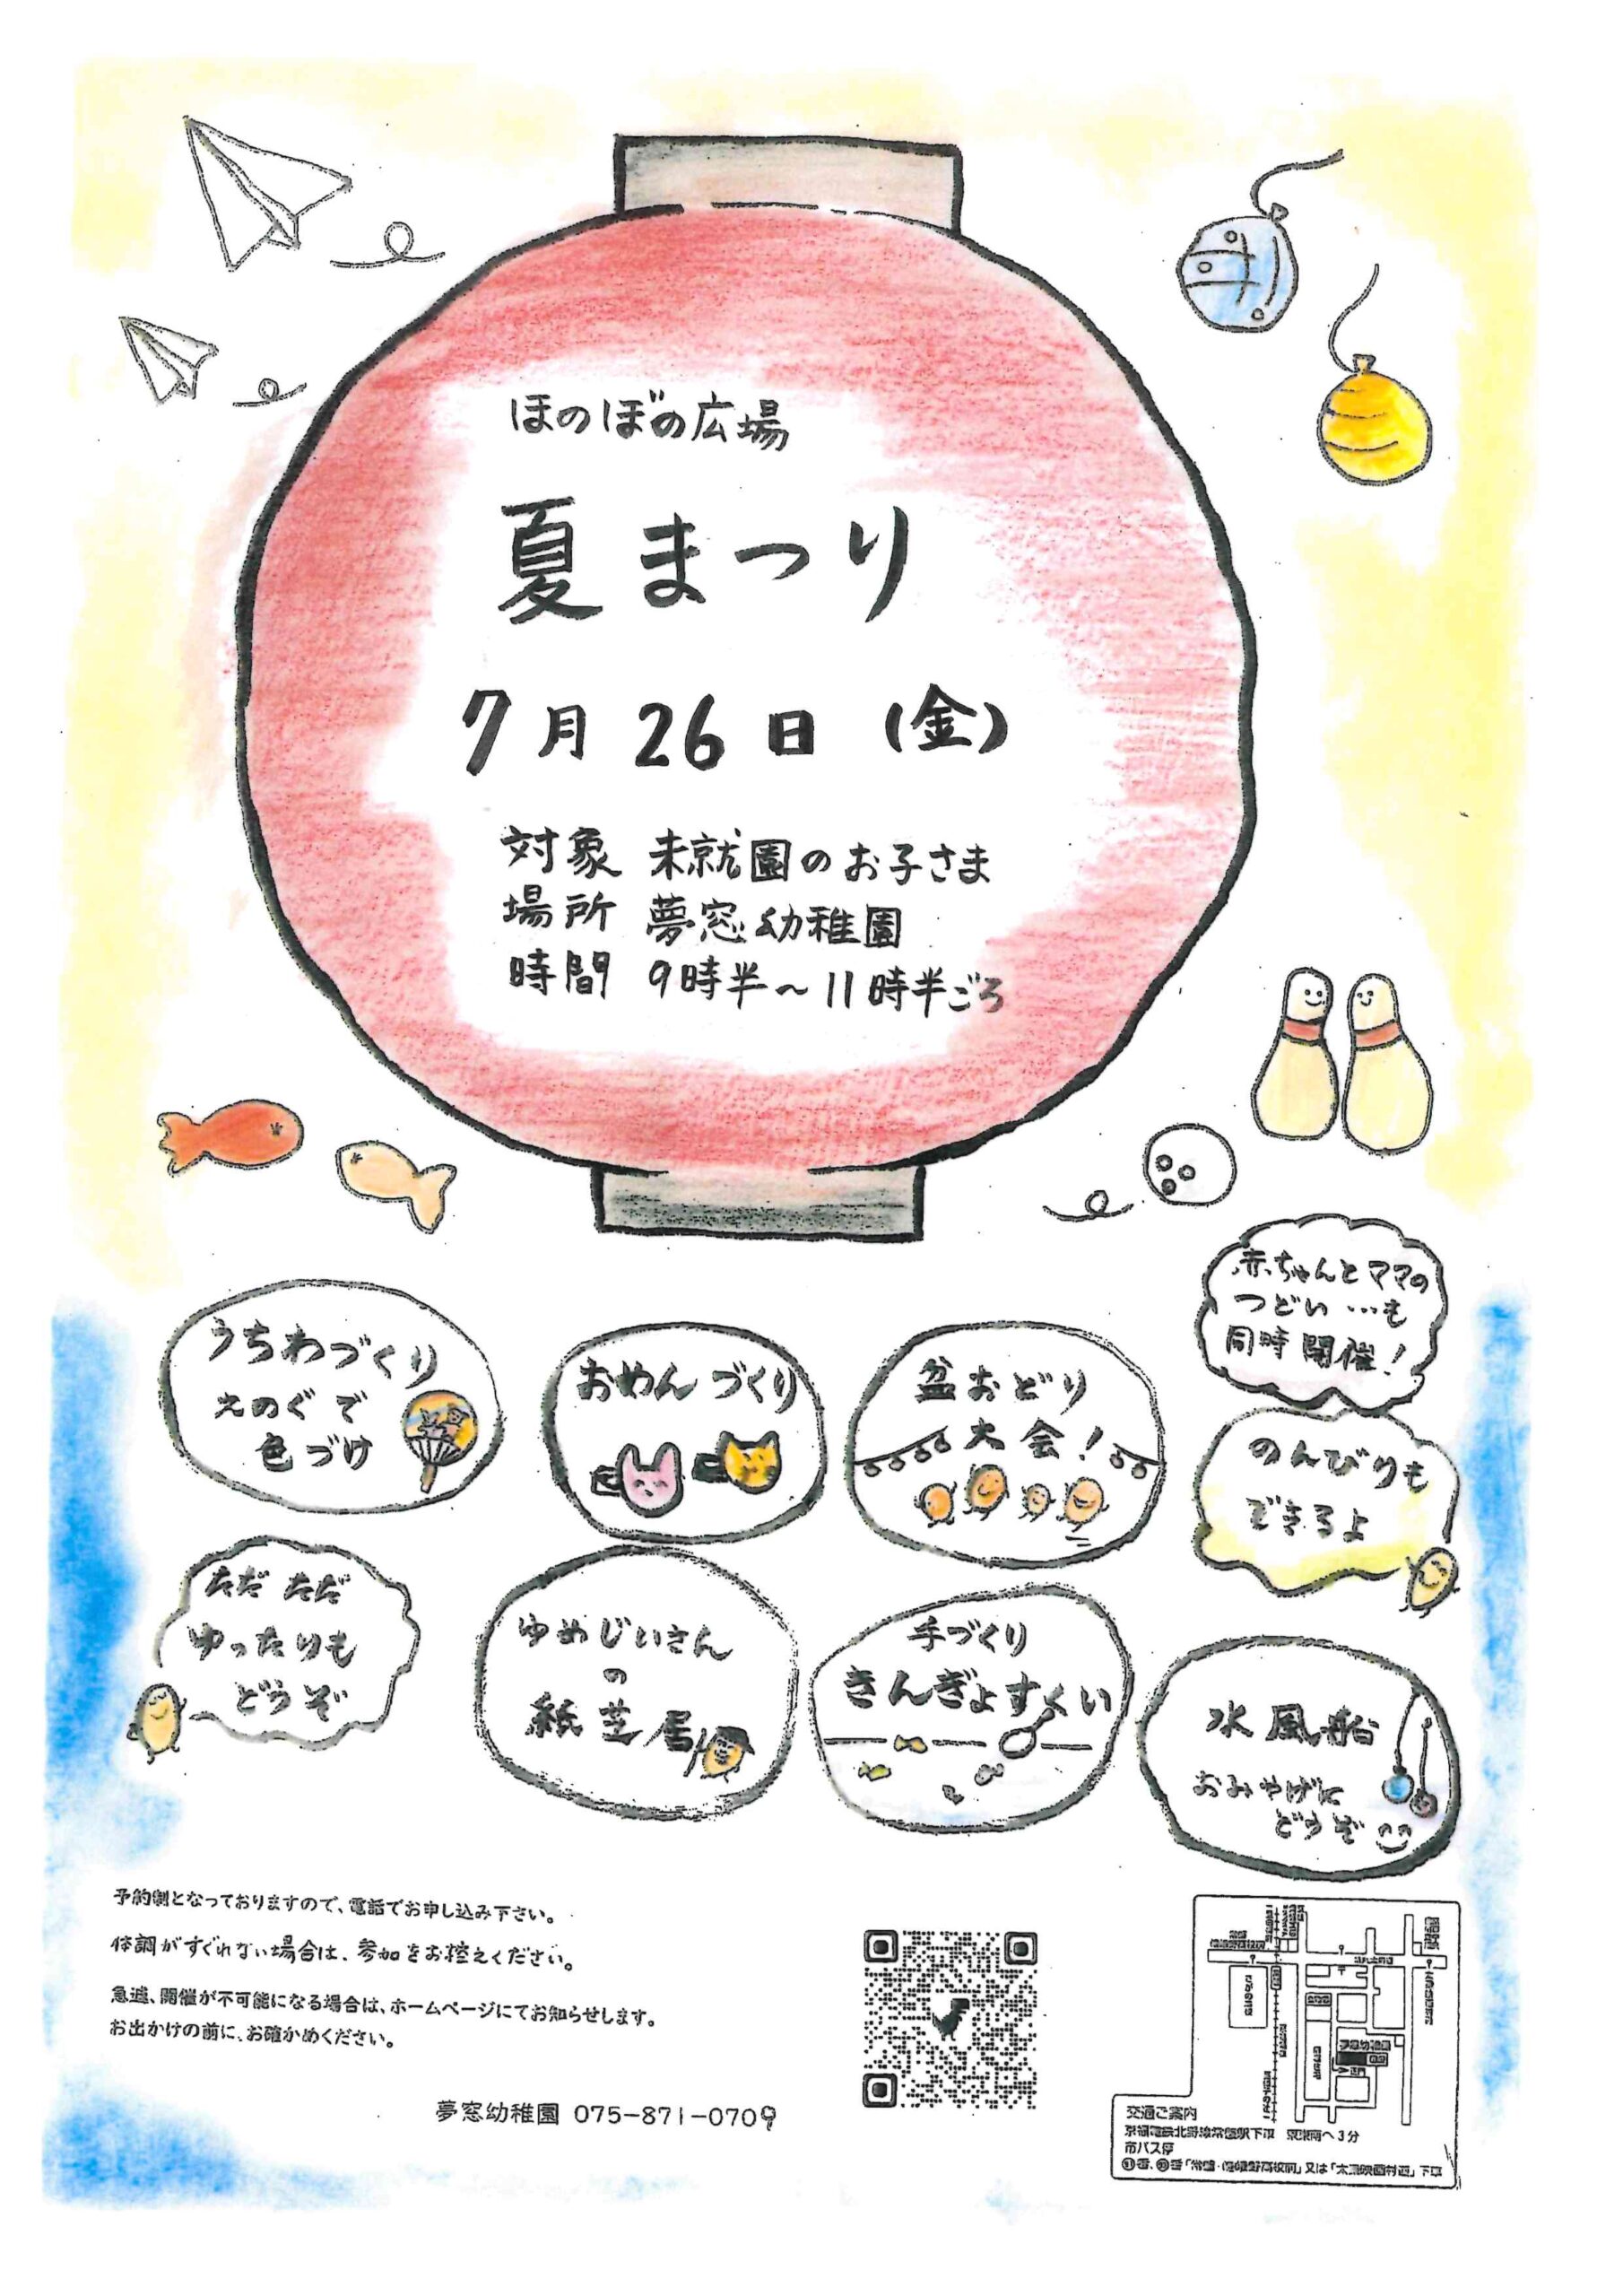 ほのぼの広場
夏まつり
7月26日(金)
対象 未就園のお子さま
場所 夢窓幼稚園
時間 9時半~11時半ごろ
赤ちゃんとママの
つどい…も
同時開催!
うちわづくり
えのぐで
色づけ
おめんづくり
盆おどり
大会!
のんびりも
できるよ
ただただ
ゆったりも
どうぞ
ゆめじいさん
の
紙芝居
手づくり
きんぎょすくい
水風船
おみやげに
どうぞ
予約制となっておりますので、電話でお申し込み下さい。
体調がすぐれない場合は、参加をお控えください。
急遽、開催が不可能になる場合は、ホームページにてお知らせします。
お出かけの前に、お確かめください。
夢窓幼稚園 075-871-0709
夢窓幼稚園
交通ご案内
京福電鉄北野線常盤駅下車 東南へ3分
市バス停